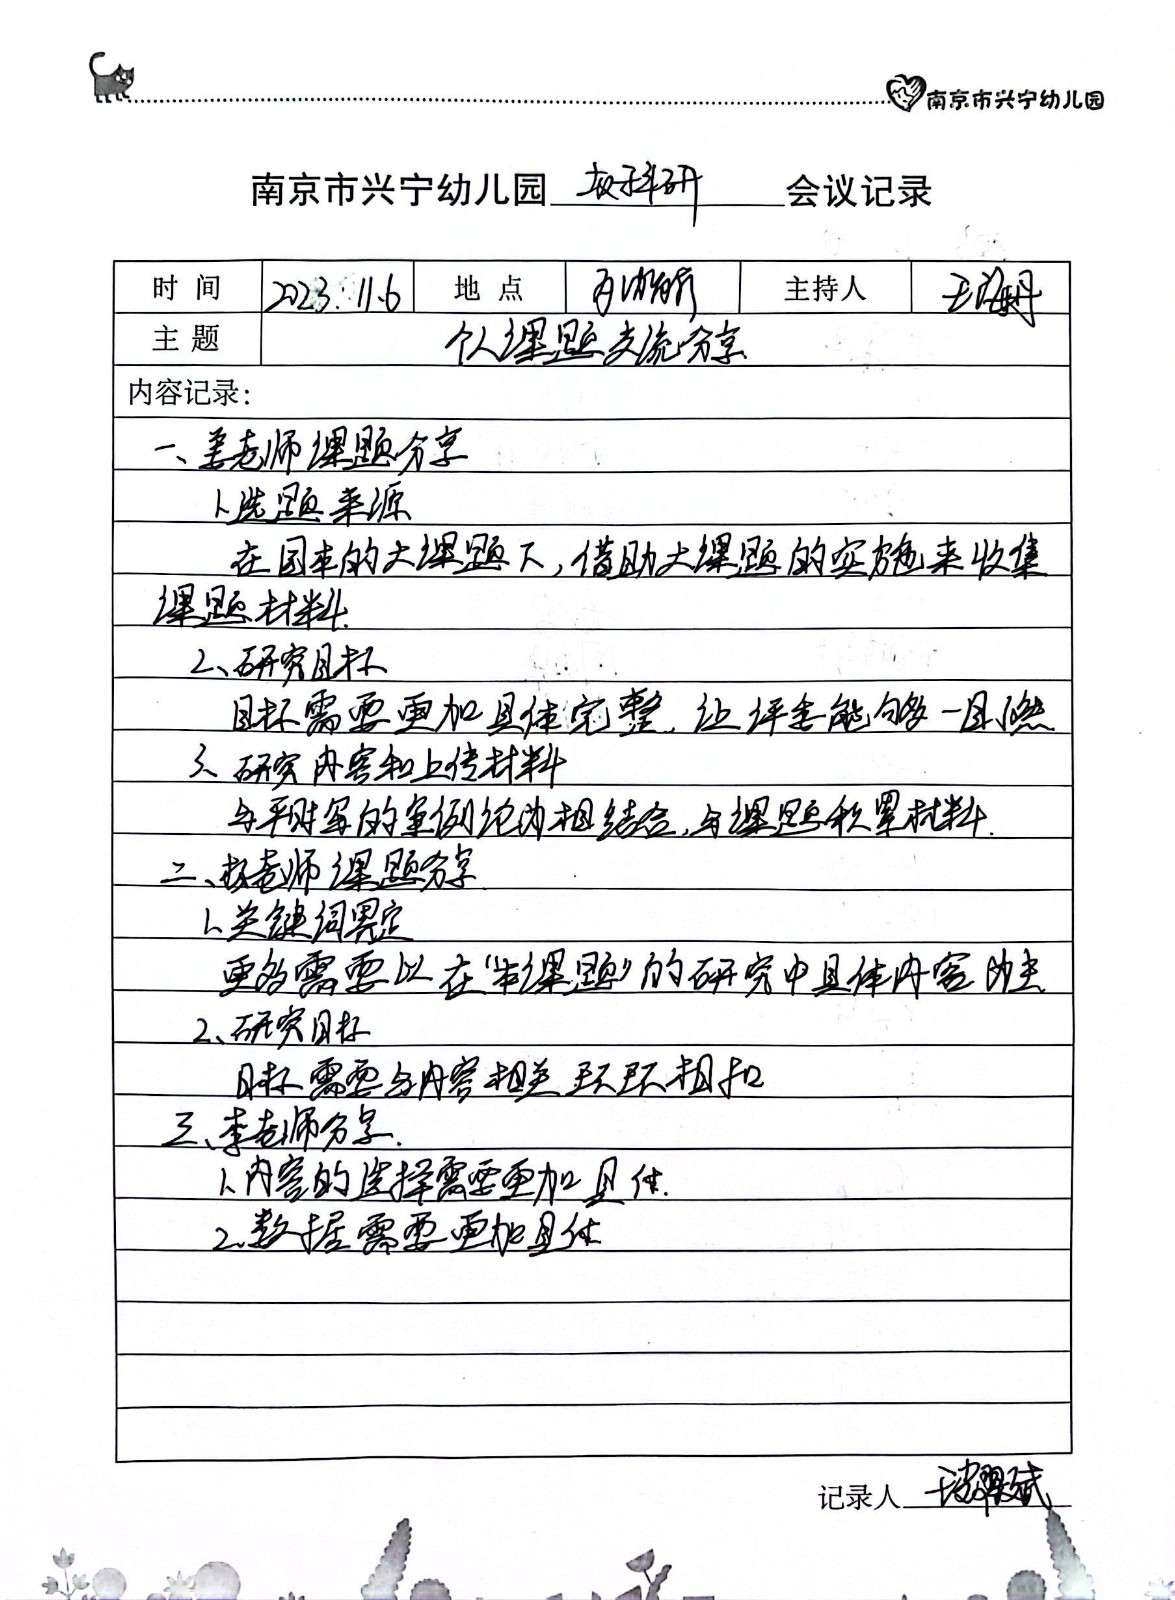 南京市兴宁幼儿园
南京市兴宁幼儿园 教科研 会议记录
时间 2023.11.6 地点 主持人 王海丹
主题 个人课题交流分享
内容记录:
一、姜老师课题分享
1、选题来源
在园本的大课题下,借助大课题的实施来收集
课题材料.
2、研究目标
目标需要更加具体完整,让评委能够一目了然
3、研究内容和上传材料
与平时写的案例论文相结合,与课题积累材料.
二、赵老师课题分享
1、关键词界定
更多需要以在“本课题”的研究中具体内容为主
2、研究目标
目标需要与内容相关环环相扣
三、李老师分享.
1.内容的选择需要更加具体.
2.数据需要更加具体
记录人